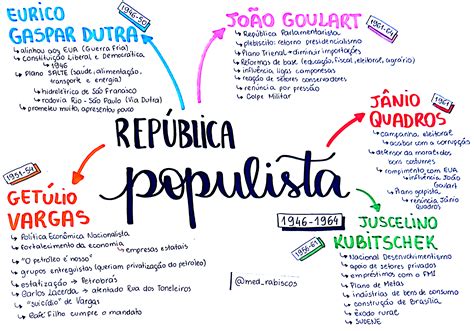 EURICO
GASPAR DUTRA
1946-50
↳ alinhou aos EUA (Guerra Fria)
↳ Constituição Liberal e Democrática
↳ 1946
↳ Plano SALTE (saúde, alimentação,
transporte e energia)
↳ hidrelétrica de São Francisco
↳ rodovia Rio - São Paulo (Via Dutra)
↳ prometeu muito, apresentou pouco
JOÃO GOULART
1961-64
↳ República Parlamentarista
↳ plebiscito: retorno presidencialismo
↳ Plano Trienal → diminuir importações
↳ Reformas de base (educação, fiscal, eleitoral, agrário)
↳ influência ligas camponesas
↳ reação de setores conservadores
↳ renúncia por pressão
↳ Golpe Militar
JÂNIO
QUADROS
1961
↳ campanha eleitoral
↳ acabar com a corrupção
↳ defensor da moral e dos
bons costumes
↳ rompimento com EUA
↳ influência João
Goulart
↳ Plano golpista
↳ renúncia Jânio
Quadros
REPÚBLICA
populista
1946-1964
1951-54
GETÚLIO
VARGAS
↳ Política Econômica Nacionalista
↳ fortalecimento da economia
↳ empresas estatais
↳ "O petróleo é nosso"
↳ grupos entreguistas (queriam privatização do petróleo)
↳ estatização → Petrobrás
↳ Carlos Lacerda → atentado Rua dos Toneleiros
↳ "suicídio" de Vargas
↳ Café Filho cumpre o mandato
1956-61
JUSCELINO
KUBITSCHEK
↳ Nacional Desenvolvimentismo
↳ apoio de setores privados
↳ empréstimos com o FMI
↳ Plano de Metas
↳ indústrias de bens de consumo
↳ construção de Brasília
↳ Êxodo rural
↳ SUDENE
@med_rabiscos